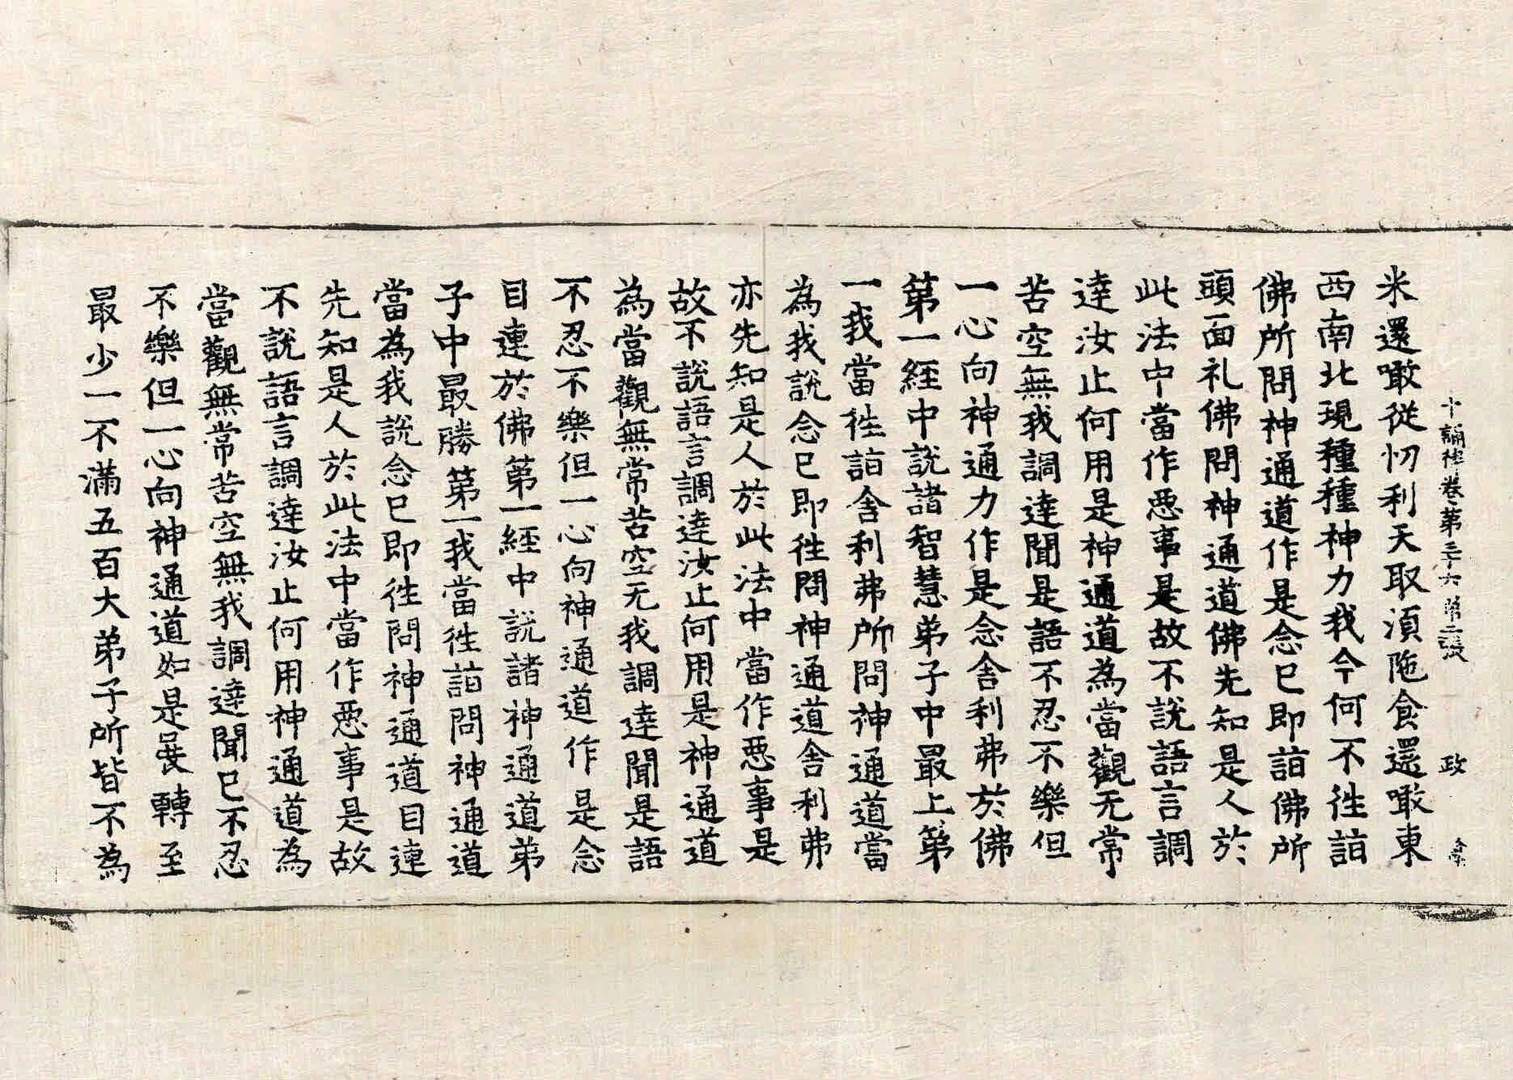 十誦律卷第三十六 第二張 政
米還噉從忉利天取湏陁食還噉東
西南北現種種神力我今何不徃詣
佛所問神通道作是念已即詣佛所
頭面礼佛問神通道佛先知是人於
此法中當作惡事是故不說語言調
達汝止何用是神通道為當觀无常
苦空無我調達聞是語不忍不樂但
一心向神通力作是念舍利弗於佛
第一經中說諸智慧弟子中最上第
一我當徃詣舍利弗所問神通道當
為我說念已即徃問神通道舍利弗
亦先知是人於此法中當作惡事是
故不說語言調達汝止何用是神通道
為當觀無常苦空无我調達聞是語
不忍不樂但一心向神通道作是念
目連於佛第一經中說諸神通道弟
子中最勝第一我當徃詣問神通道
當為我說念已即徃問神通道目連
先知是人於此法中當作惡事是故
不說語言調達汝止何用神通道為
當觀無常苦空無我調達聞已不忍
不樂但一心向神通道如是展轉至
最少一不滿五百大弟子所皆不為